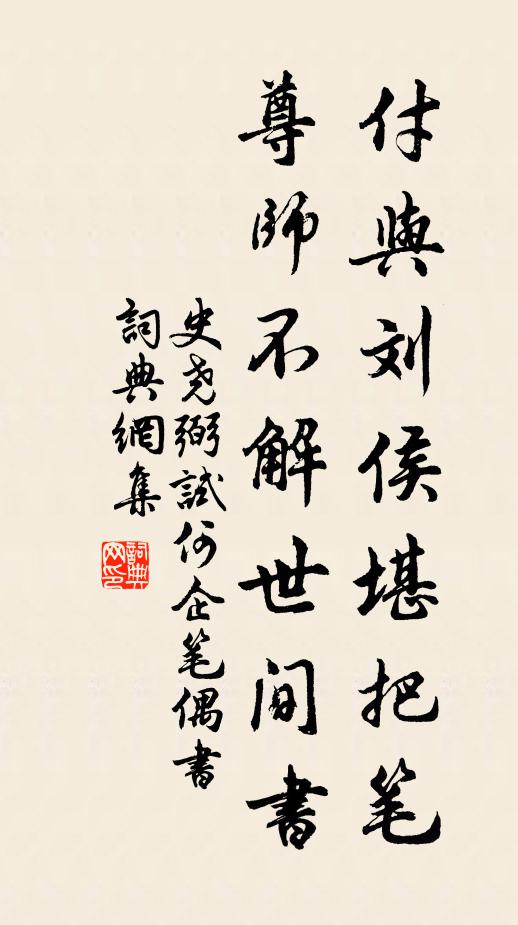 付與刘侯堪把笔
尊師不解世間書
史尧弼試何企笔偶書
詞典網集
詞典
网印